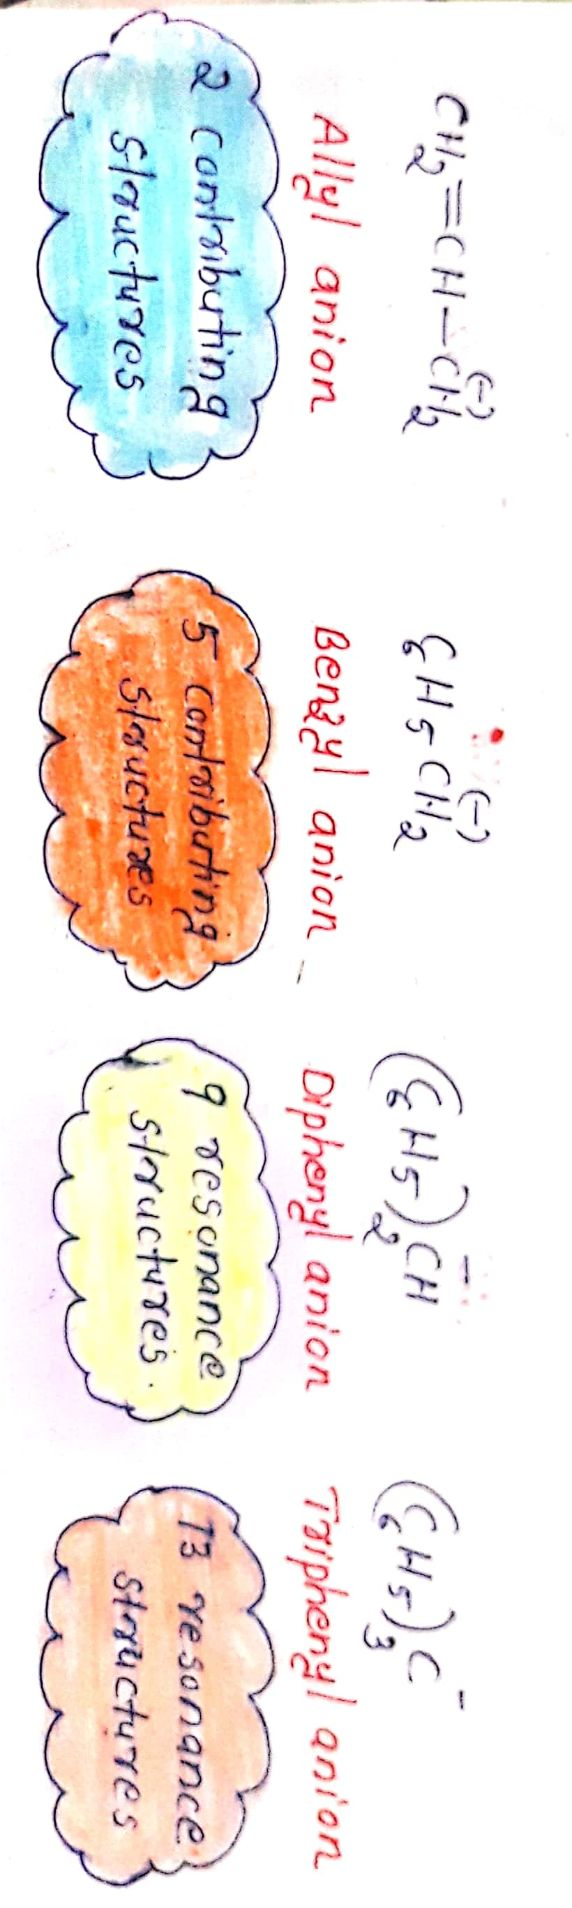 CH2=CH-CH2(-)
Allyl anion
2 contributing
structures
C6H5CH2(-)
Benzyl anion
5 contributing
structures
(C6H5)2CH-
Diphenyl anion
9 resonance
structures.
(C6H5)3C-
Triphenyl anion
13 resonance
structures